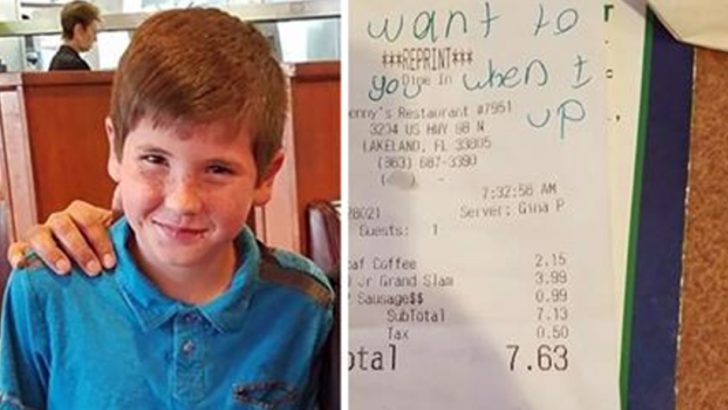 want to
***REPRINT***
Dine In
you when I
enny's Restaurant #7951
up
3234 US HWY 98 N
LAKELAND, FL 33805
(863) 687-3390
7:32:56 AM
78021 Server: Gina P
Guests: 1
af Coffee 2.15
Jr Grand Slam 3.99
Sausage$$ 0.99
SubTotal 7.13
Tax 0.50
otal 7.63